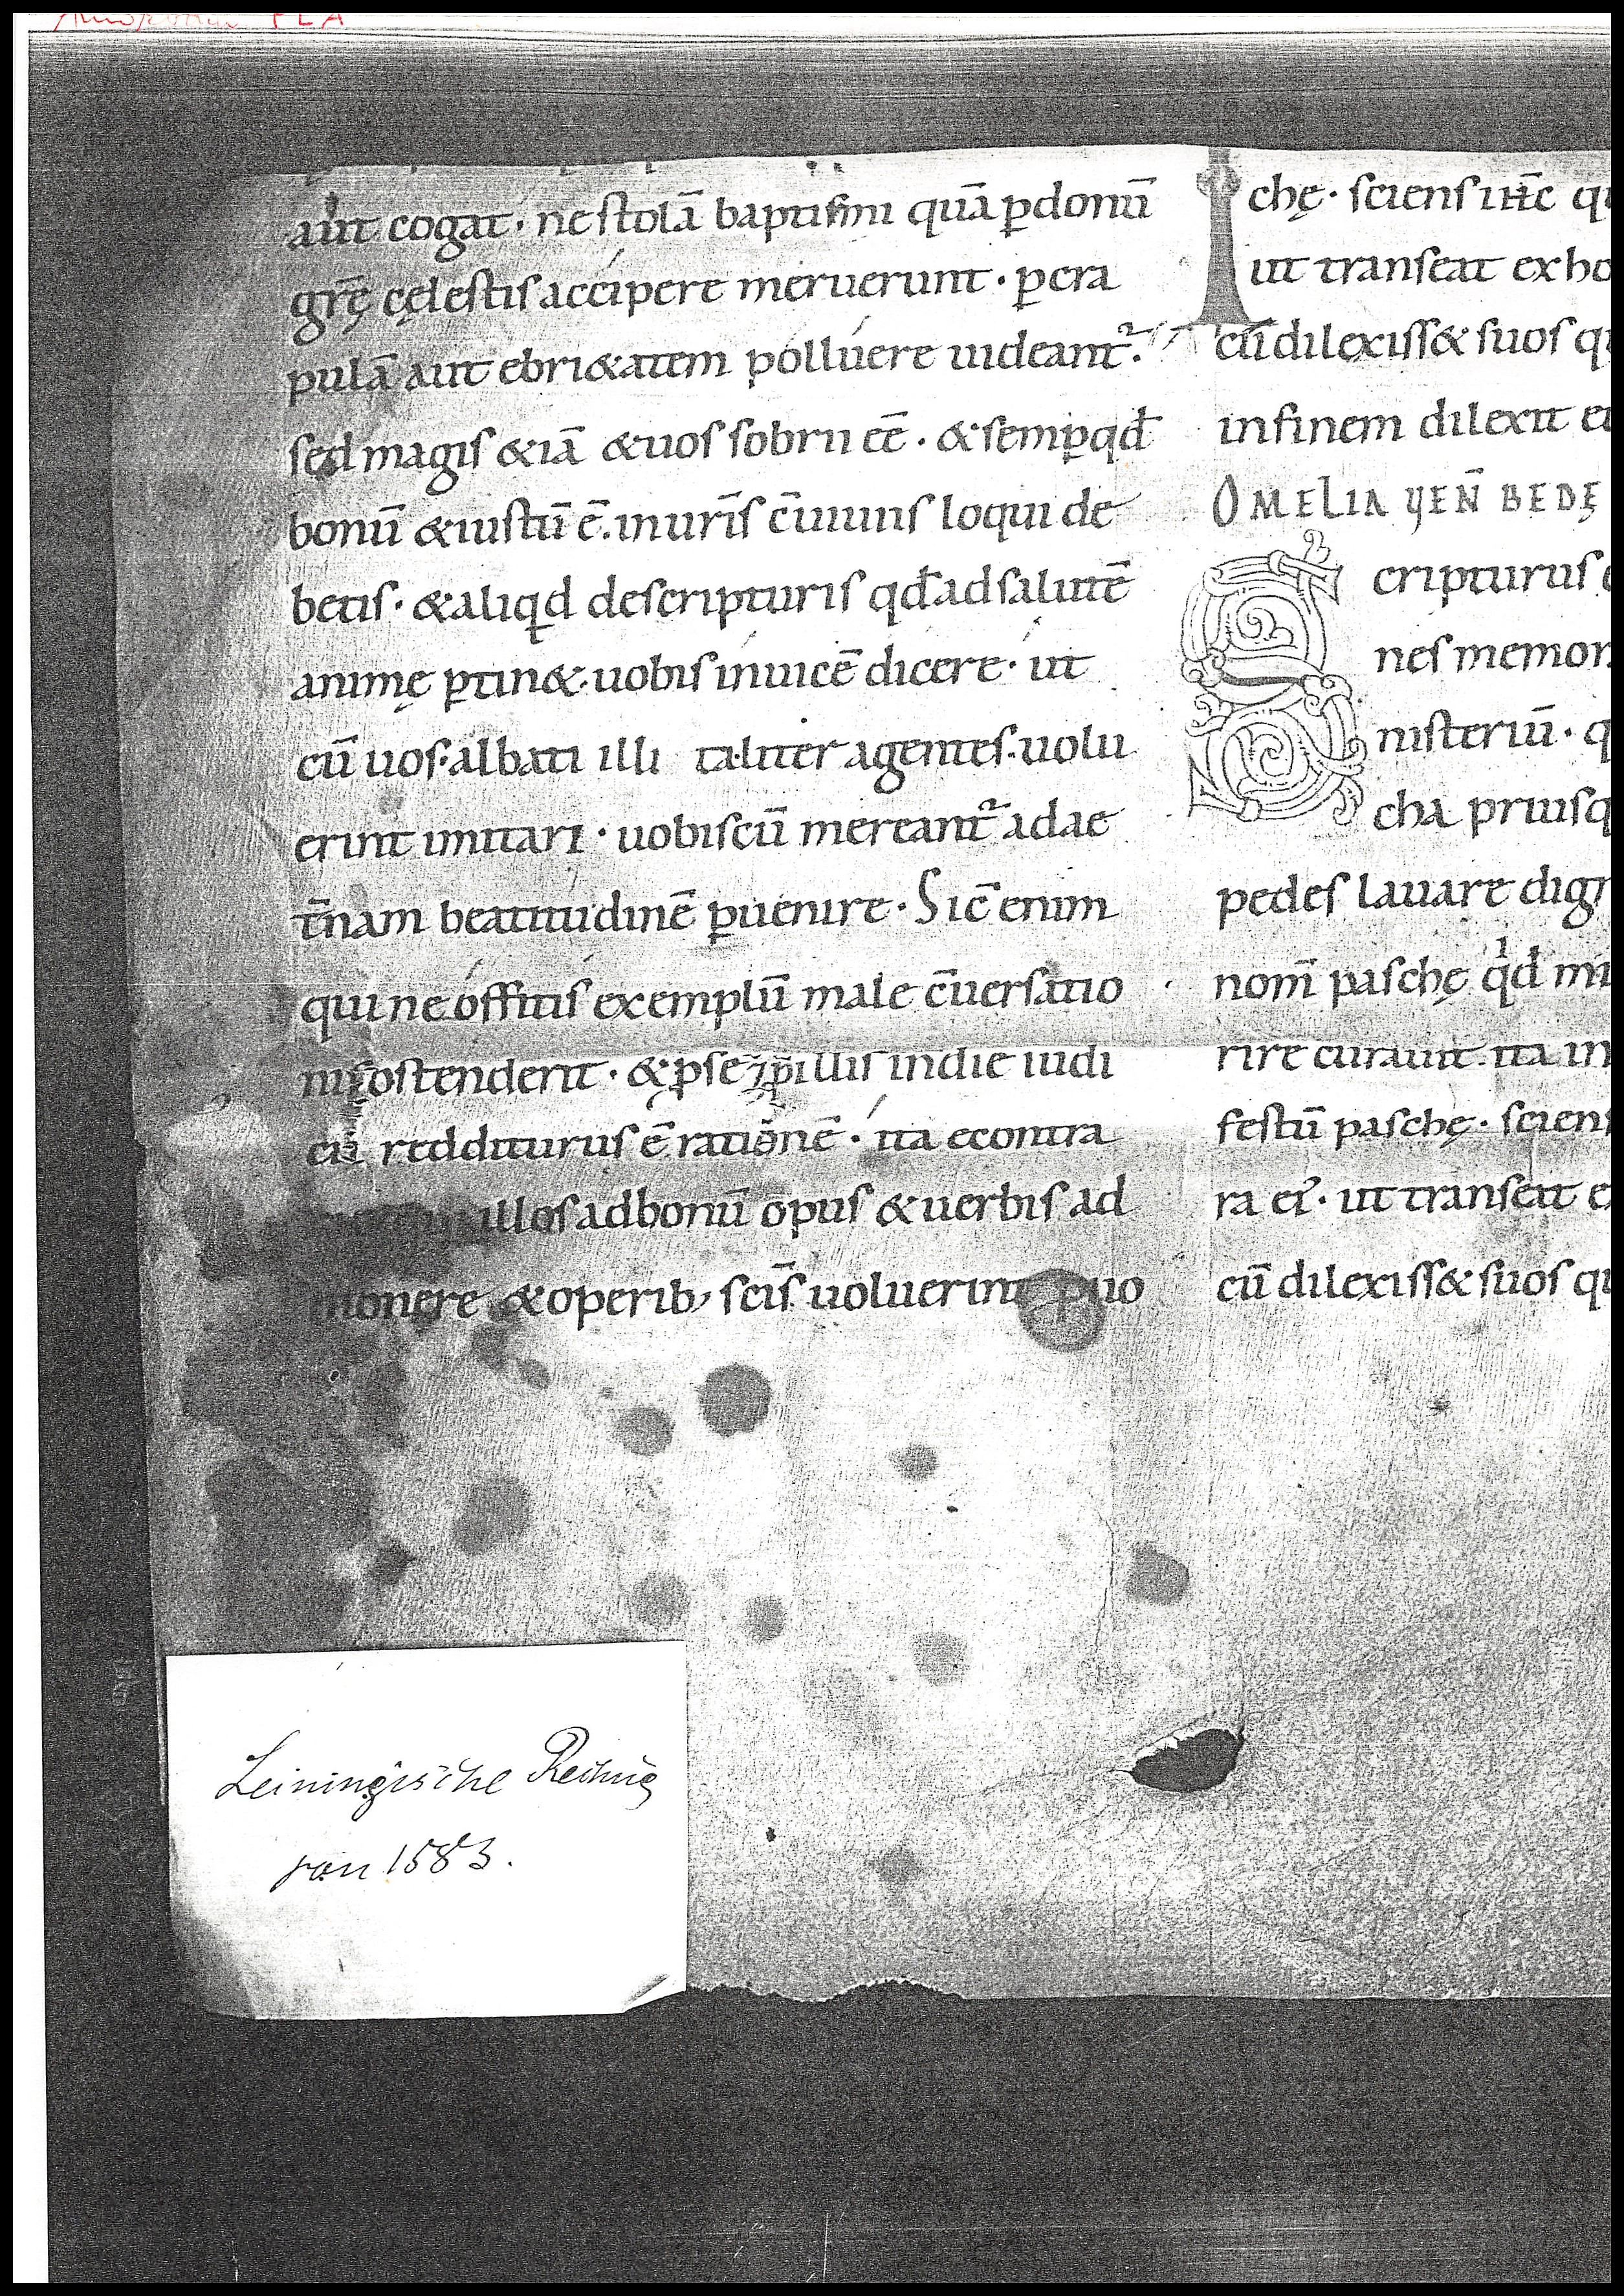 aut cogat · ne stolā baptismi quā ꝑdonū
grę̄ cęlestis accipere meruerunt · ꝑcra
pulā aut ebri&atem polluere uideant᷑.
sed magis &iā &uos sobrii eē · &semꝑ qd̄
bonū &iustū ē. inuris̄ c̄uiuiis loqui de
betis · &aliqd descripturis qd̄ adsalutē
animę ꝑtin&· uobis inuicē dicere · ut
cū uos· albati illi taliter agentes· uolu
erint imitari · uobiscū mereant᷑ adae
t̄nam beatitudinē ꝑuenire · Sic̄ enim
qui neoffitis exemplū male c̄uersatio
nis ostenderit · &ꝑse ⁊ꝑillis indie iudi
cii redditurus ē rationē · ita econtra
illos adbonū opus &uerbis ad
monere &operib; scis̄ uoluerint ꝓuo
chę · sciens
ut transeat exho
cū dilexiss& suos q
infinem dilexit e
OMELIA VEN̄ BEDĘ
Scripturus
nes memor
nisteriū · q
cha priusq
pedes lauare dig
nom̄ paschę qd̄ mi
rire curauit ita in
festū paschę · sciens
ra ei · ut transeat e
cū dilexiss& suos q
Leiningische
von 1583.